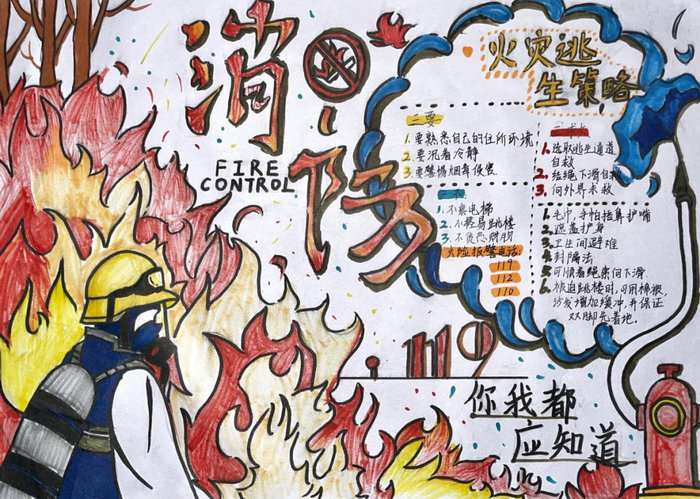 消
防
FIRE
CONTROL
火灾逃
生策略
二要
1. 要熟悉自己的住所环境
2. 要沉着冷静
3. 要警惕烟毒侵害
1. 不乘电梯
2. 不轻易跳楼
3. 不贪恋财物
火险报警电话
119
112
110
1. 选取逃生通道
自救
2. 结绳下滑自救
3. 向外界求救
1. 毛巾,手帕捂鼻护嘴
2. 遮盖护身
3. 卫生间避难
4. 封隔法
5. 可顺着绳索向下滑
6. 被迫跳楼时,可用棉被,
沙发增加缓冲,并保证
双脚先着地.
119
你我都
应知道